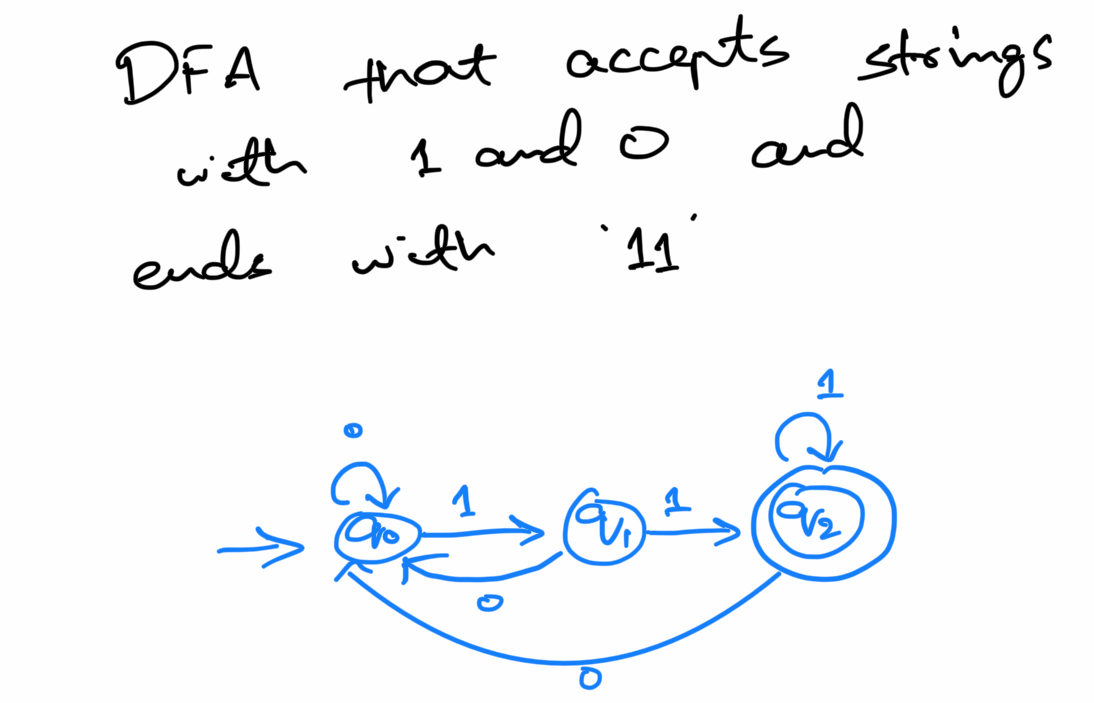 DFA that accepts strings
with 1 and 0 and
ends with '11'
1
0
1
1
q0
q1
q2
0
0